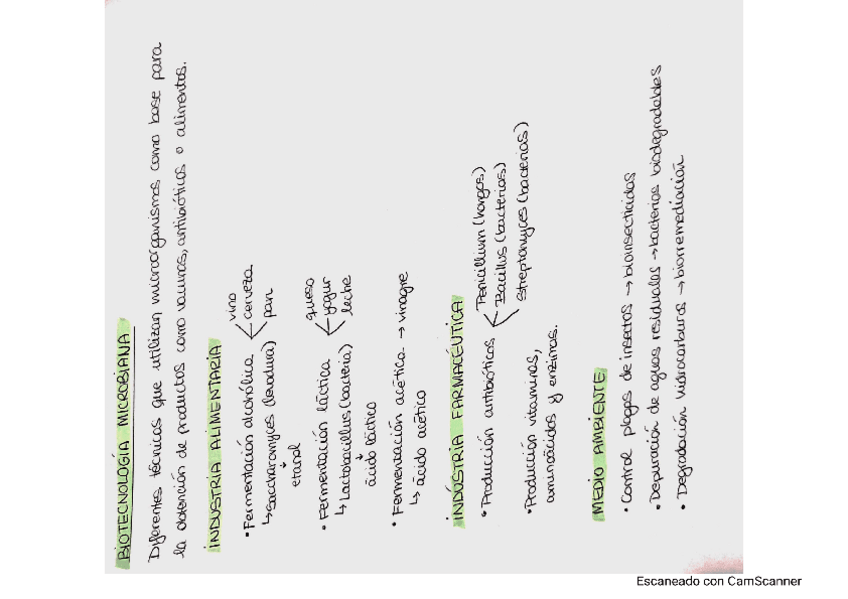 BIOTECNOLOGÍA MICROBIANA
Diferentes técnicas que utilizan microorganismos como base para
la obtención de productos como vacunas, antibióticos o alimentos.
INDUSTRIA ALIMENTARIA
• Fermentación alcohólica
↳ Saccharomyces (levadura)
↓
etanol
vino
cerveza
pan
• Fermentación láctica
↳ Lactobacillus (bacteria)
↓
ácido láctico
queso
yogur
leche
• Fermentación acética → vinagre
↳ ácido acético
INDUSTRIA FARMACÉUTICA
• Producción antibióticos
Penicillium (hongos)
Bacillus (bacterias)
Streptomyces (bacterias)
• Producción vitaminas,
aminoácidos y enzimas.
MEDIO AMBIENTE
• Control plagas de insectos → bioinsecticidas
• Depuración de aguas residuales → bacterias biodegradables
• Degradación hidrocarburos → biorremediación
Escaneado con CamScanner